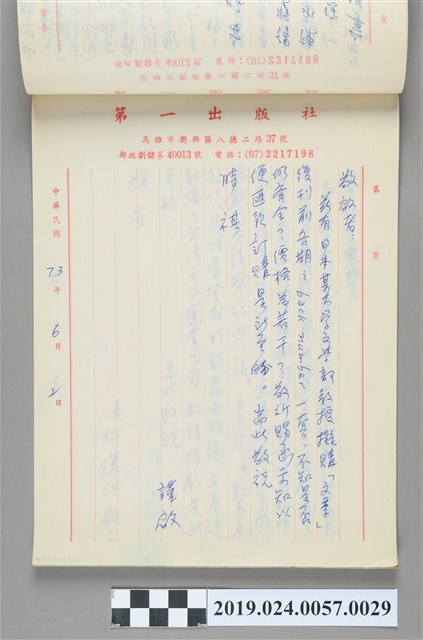 第一出版社
高雄市新興區八德二路37號
郵政劃儲第40013號 電話:(07)2217198
第 頁
敬啟者:
茲有日本某大學文學部教授擬購「文季」
復刊前各期之back number一套,不知是否
仍有全?價格為若干?敬祈賜函示知以
便匯款訂購是所至盼。耑此敬祝
時祺
謹啟
中華民國73年6月2日
2019.024.0057.0029